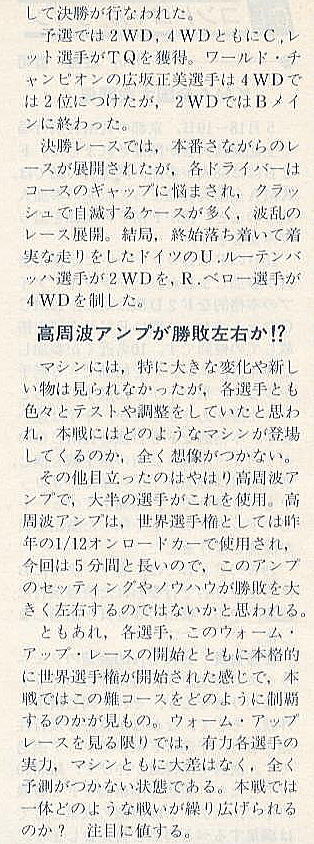 して決勝が行なわれた。
予選では2WD，4WDともにC，レ
ット選手がTQを獲得。ワールド・チ
ャンピオンの広坂正美選手は4WDで
は2位につけたが，2WDではBメイ
ンに終わった。
決勝レースでは，本番さながらのレ
ースが展開されたが，各ドライバーは
コースのギャップに悩まされ，クラッ
シュで自滅するケースが多く，波乱の
レース展開。結局，終始落ち着いて着
実な走りをしたドイツのU．ルーテンバ
ッハ選手が2WDを，R．ベロー選手が
4WDを制した。
高周波アンプが勝敗左右か!?
マシンには，特に大きな変化や新し
い物は見られなかったが，各選手とも
色々とテストや調整をしていたと思わ
れ，本戦にはどのようなマシンが登場
してくるのか，全く想像がつかない。
その他目立ったのはやはり高周波ア
ンプで，大半の選手がこれを使用。高
周波アンプは，世界選手権としては昨
年の1/12オンロードカーで使用され，
今回は5分間と長いので，このアンプ
のセッティングやノウハウが勝敗を大
きく左右するのではないかと思われる。
ともあれ，各選手，このウォーム・
アップ・レースの開始とともに本格的
に世界選手権が開始された感じで，本
戦ではこの難コースをどのように制覇
するのかが見もの。ウォーム・アップ
レースを見る限りでは，有力各選手の
実力，マシンともに大差はなく，全く
予測がつかない状態である。本戦では
一体どのような戦いが繰り広げられる
のか？　注目に値する。